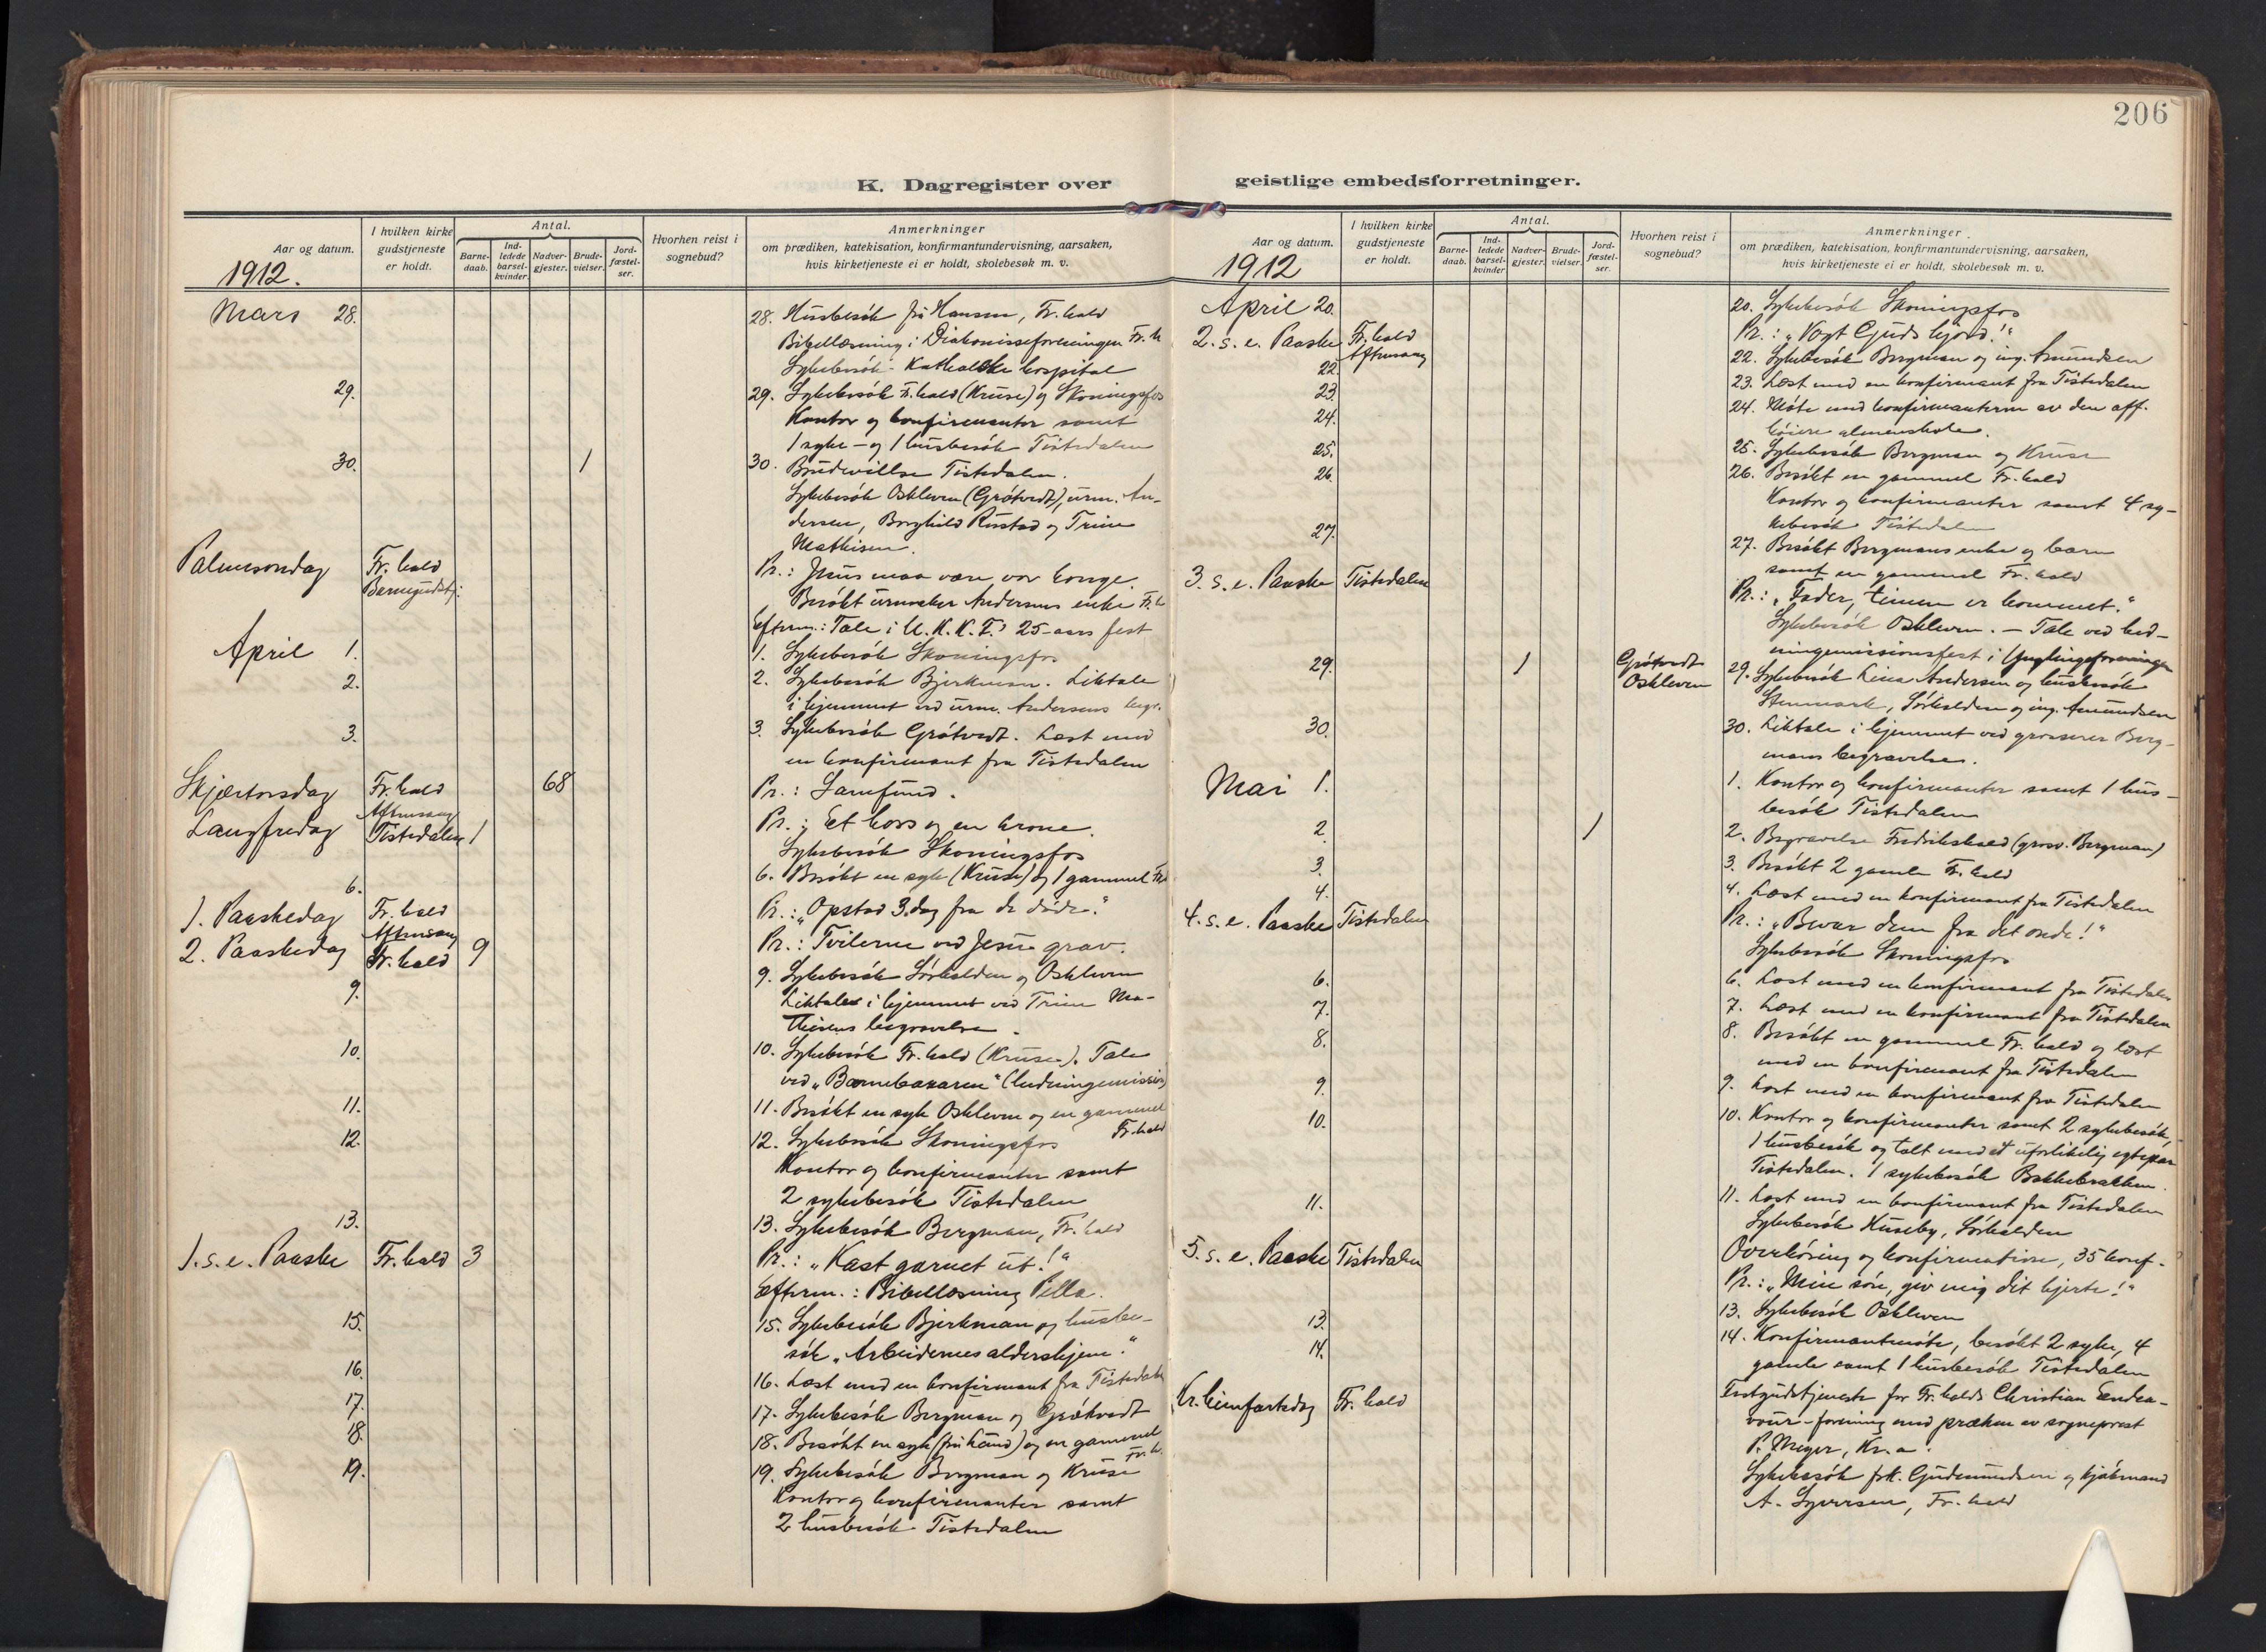 206
K. Dagregister over
geistlige embedsforretninger.
Aar og datum.
1912.
I hvilken kirke
gudstjeneste
er holdt.
Antal.
Barne-
daab.
Ind-
ledede
barsel-
kvinder
Nadver-
gjester.
Brude-
vielser.
Jord-
fæstel-
ser.
Hvorhen reist i
sognebud?
Anmerkninger
om prædiken, katekisation, konfirmantundervisning, aarsaken,
hvis kirketjeneste ei er holdt, skolebesøk m. v.
Mars 28. 28. Husbesök fru Hansen, Fr.hald
Bibellæsning i Diakonisseforeningen Fr.h
Sykebesök Katholske hospital
29. 29. Sykebesök Fr.hald (Kruse) og Skoningsfos
Kontor og konfirmanter samt
1 syke- og 1 husbesök Tistedalen
30. 1 30. Brudevielse Tistedalen.
Sykebesök Oskleven (Grötvedt), urm. An-
dersen, Borghild Rustad og Trine
Mathisen.
Palmesöndag Fr.hald Pr.: Jesus maa være vor konge.
Barnegudstj: Besökt urmaker Andersens enke Fr.h
Efterm.: Tale i U.K.K.F.s 25-aars fest
April 1. 1. Sykebesök Skoningsfos
2. 2. Sykebesök Bjerkman. Liktale
i hjemmet ved urm. Andersens begr.
3. 3. Sykebesök Grötvedt. Læst med
en konfirmant fra Tistedalen
Skjærtorsdag Fr.hald 68 Pr.: Samfund.
Aftensang
Langfredag Tistedalen 1 Pr.: Et kors og en krone.
Sykebesök Skoningsfos
6. 6. Besökt en syk (Kruse) og 1 gammel Fr.h
1. Paaskedag Fr.hald Pr.: „Opstod 3. dag fra de döde."
Aftensang
2. Paaskedag Fr.hald 9 Pr.: Tvilerne ved Jesu grav.
9. 9. Sykebesök Sörhalden og Oskleven
Liktale i hjemmet ved Trine Ma-
thisens begravelse.
10. 10. Sykebesök Fr.hald (Kruse). Tale
ved „Barnebasaren" (hedningemission)
11. 11. Besökt en syk Oskleven og en gammel
Fr.hald
12. 12. Sykebesök Skoningsfos
Kontor og konfirmanter samt
2 sykebesök Tistedalen
13. 13. Sykebesök Bergman, Fr.hald
1. s. e. Paaske Fr.hald 3 Pr.: „Kast garnet ut!"
Efterm.: Bibellæsning Pella.
15. 15. Sykebesök Bjerkman og husbe-
sök „Arbeidernes aldershjem."
16. 16. Læst med en konfirmant fra Tistedalen
17. 17. Sykebesök Bergman og Grötvedt
18. 18. Besökt en syk (fru Lund) og en gammel
Fr.h.
19. 19. Sykebesök Bergman og Kruse
Kontor og konfirmanter samt
2 husbesök Tistedalen
Aar og datum.
1912
I hvilken kirke
gudstjeneste
er holdt.
Antal.
Barne-
daab.
Ind-
ledede
barsel-
kvinder
Nadver-
gjester.
Brude-
vielser.
Jord-
fæstel-
ser.
Hvorhen reist i
sognebud?
Anmerkninger
om prædiken, katekisation, konfirmantundervisning, aarsaken,
hvis kirketjeneste ei er holdt, skolebesøk m. v.
April 20. 20. Sykebesök Skoningsfos
2. s. e. Paaske Fr.hald Pr.: „Vogt Guds hjord!"
Aftensang
22. 22. Sykebesök Bergman og ing. Amundsen
23. 23. Læst med en konfirmant fra Tistedalen
24. 24. Möte med konfirmanterne av den off.
höiere almenskole.
25. 25. Sykebesök Bergman og Kruse
26. 26. Besökt en gammel Fr.hald
Kontor og konfirmanter samt 4 sy-
kebesök Tistedalen
27. 27. Besökt Bergmans enke og barn
samt en gammel Fr.hald
3. s. e. Paaske Tistedalen Pr.: „Fader, timen er kommet."
Sykebesök Oskleven. - Tale ved hed-
ningemissionsfest i Ynglingeforeningen
29. 1 Grötvedt 29. Sykebesök Lina Andersen og husbesök
Oskleven Stenmark, Sörhalden og ing. Amundsen
30. 30. Liktale i hjemmet ved grosserer Berg-
mans begravelse.
Mai 1. 1. Kontor og konfirmanter samt 1 hus-
besök Tistedalen
2. 1 2. Begravelse Fredrikshald (gross. Bergman)
3. 3. Besökt 2 gamle Fr.hald
4. 4. Læst med en konfirmant fra Tistedalen
4. s. e. Paaske Tistedalen Pr.: „Bevar dem fra det onde!"
Sykebesök Skoningsfos
6. 6. Læst med en konfirmant fra Tistedalen
7. 7. Læst med en konfirmant fra Tistedalen
8. 8. Besökt en gammel Fr.hald og læst
med en konfirmant fra Tistedalen
9. 9. Læst med en konfirmant fra Tistedalen
10. 10. Kontor og konfirmanter samt 2 sykebesök,
1 husbesök og talt med et uforlikelig egtepar
Tistedalen. 1 sykebesök Bakkebrakken.
11. 11. Læst med en konfirmant fra Tistedalen
Sykebesök Huseby, Sörhalden
5. s. e. Paaske Tistedalen Overhöring og konfirmation, 35 konf.
Pr.: „Min sön, giv mig dit hjerte!"
13. 13. Sykebesök Oskleven
14. 14. Konfirmantmöte, besökt 2 syke, 4
gamle samt 1 husbesök Tistedalen
Kr. himfartsdag Fr.hald Festgudstjeneste for Fr.halds Christian Endea-
vour-forening med præken av sogneprest
P. Meyer, Kr.a.
Sykebesök frk. Gudmundsen og kjöbmand
A. Syversen, Fr.hald